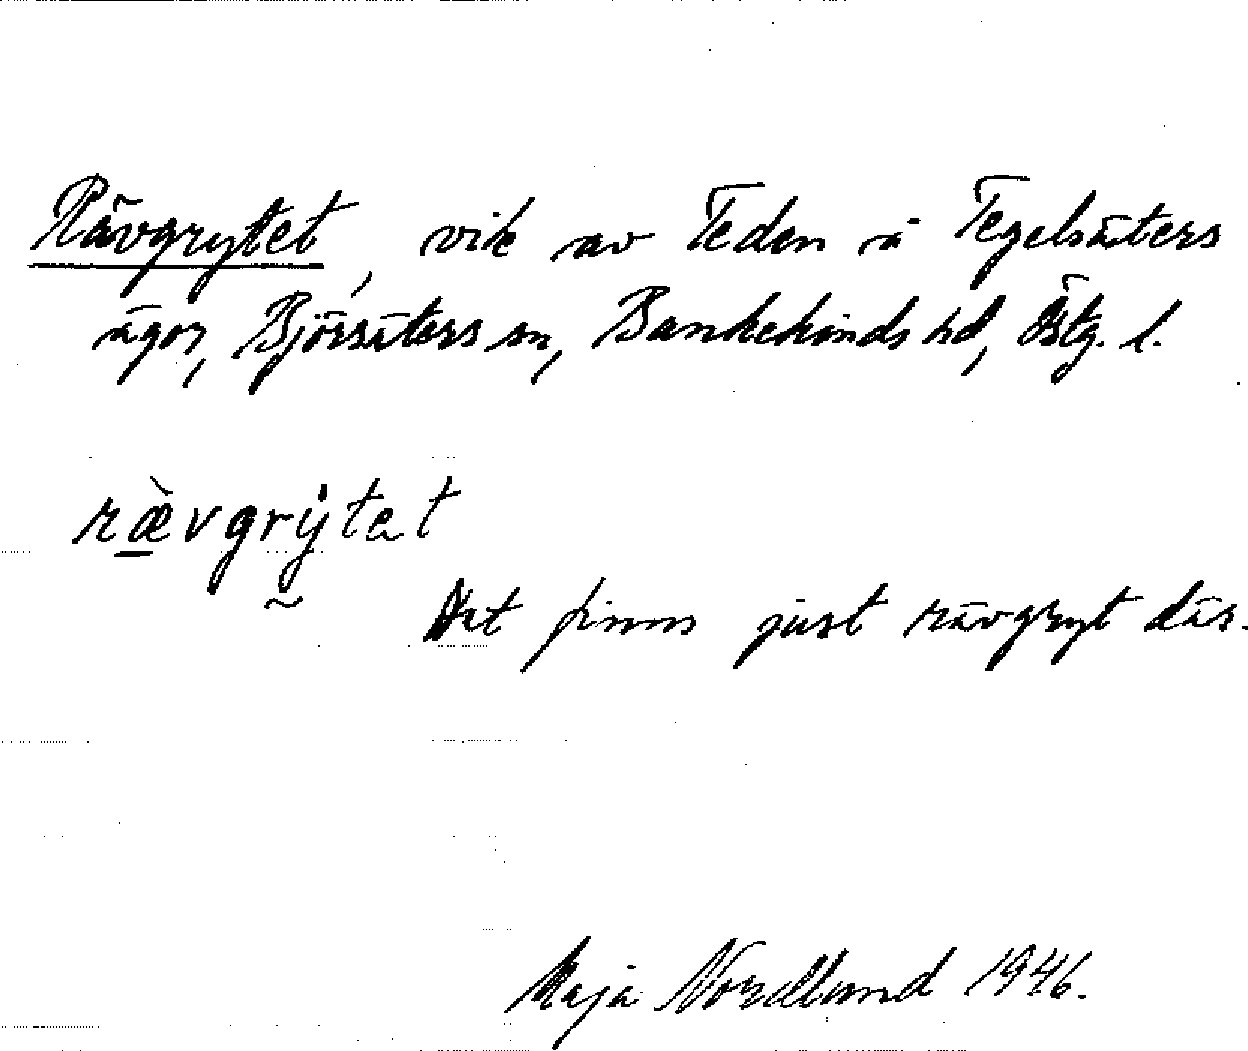 Rävgrytet, vik av Teden å Tegelsäters
ägor, Björsäters sn, Bankekinds hd, Östg. l.
rævgrytet
Det finns just rävgryt där.
Maja Nordlund 1946.